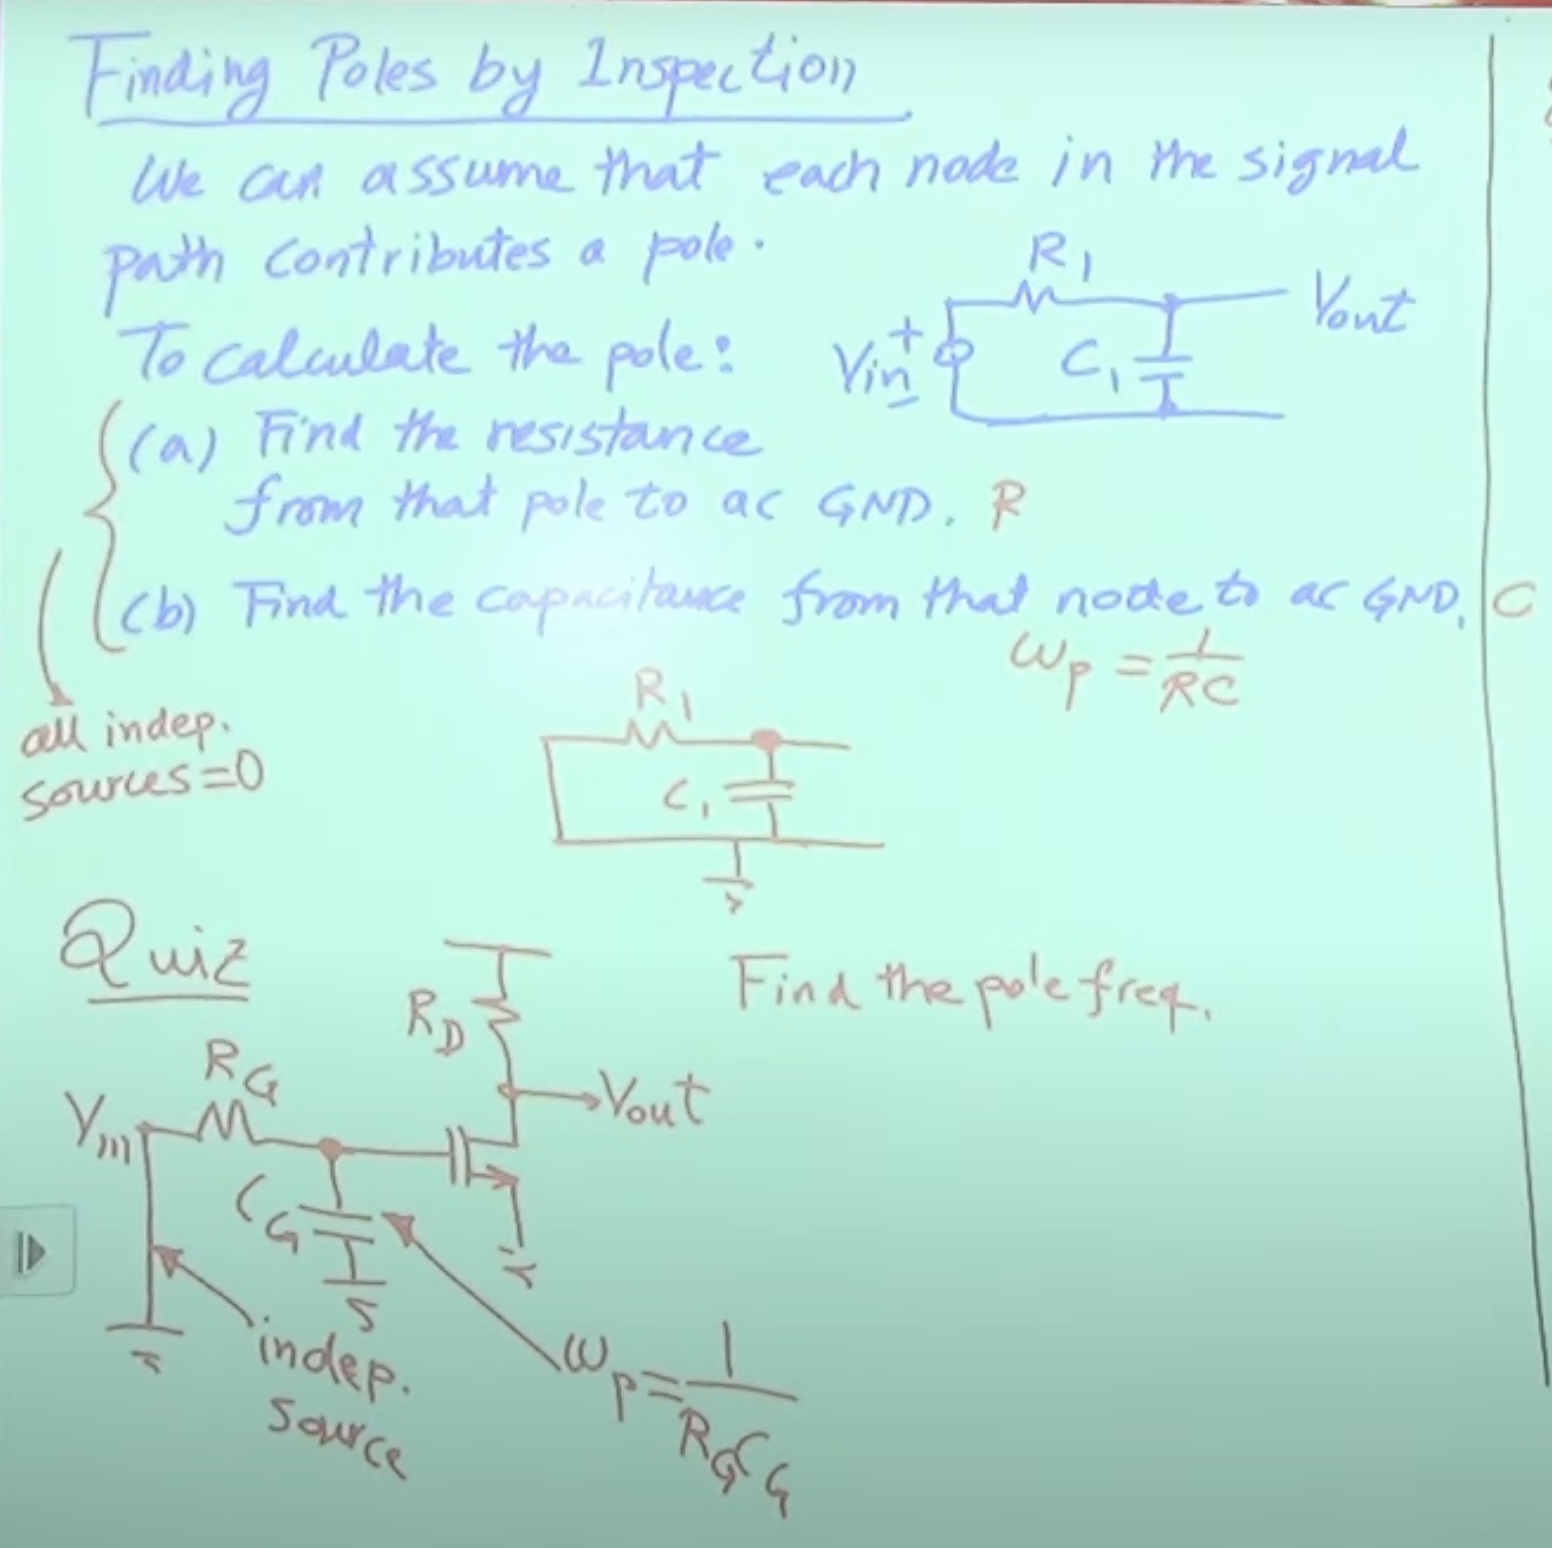 Finding Poles by Inspection
We can assume that each node in the signal
path contributes a pole.
R1
Vout
To calculate the pole:
Vin
+
-
C1
(a) Find the resistance
from that pole to ac GND. R
(b) Find the capacitance from that node to ac GND, C
ωp = 1/RC
all indep.
sources=0
R1
C1
Quiz
Find the pole freq.
RD
RG
Vin
Vout
CG
indep.
source
ωp = 1/RGCG